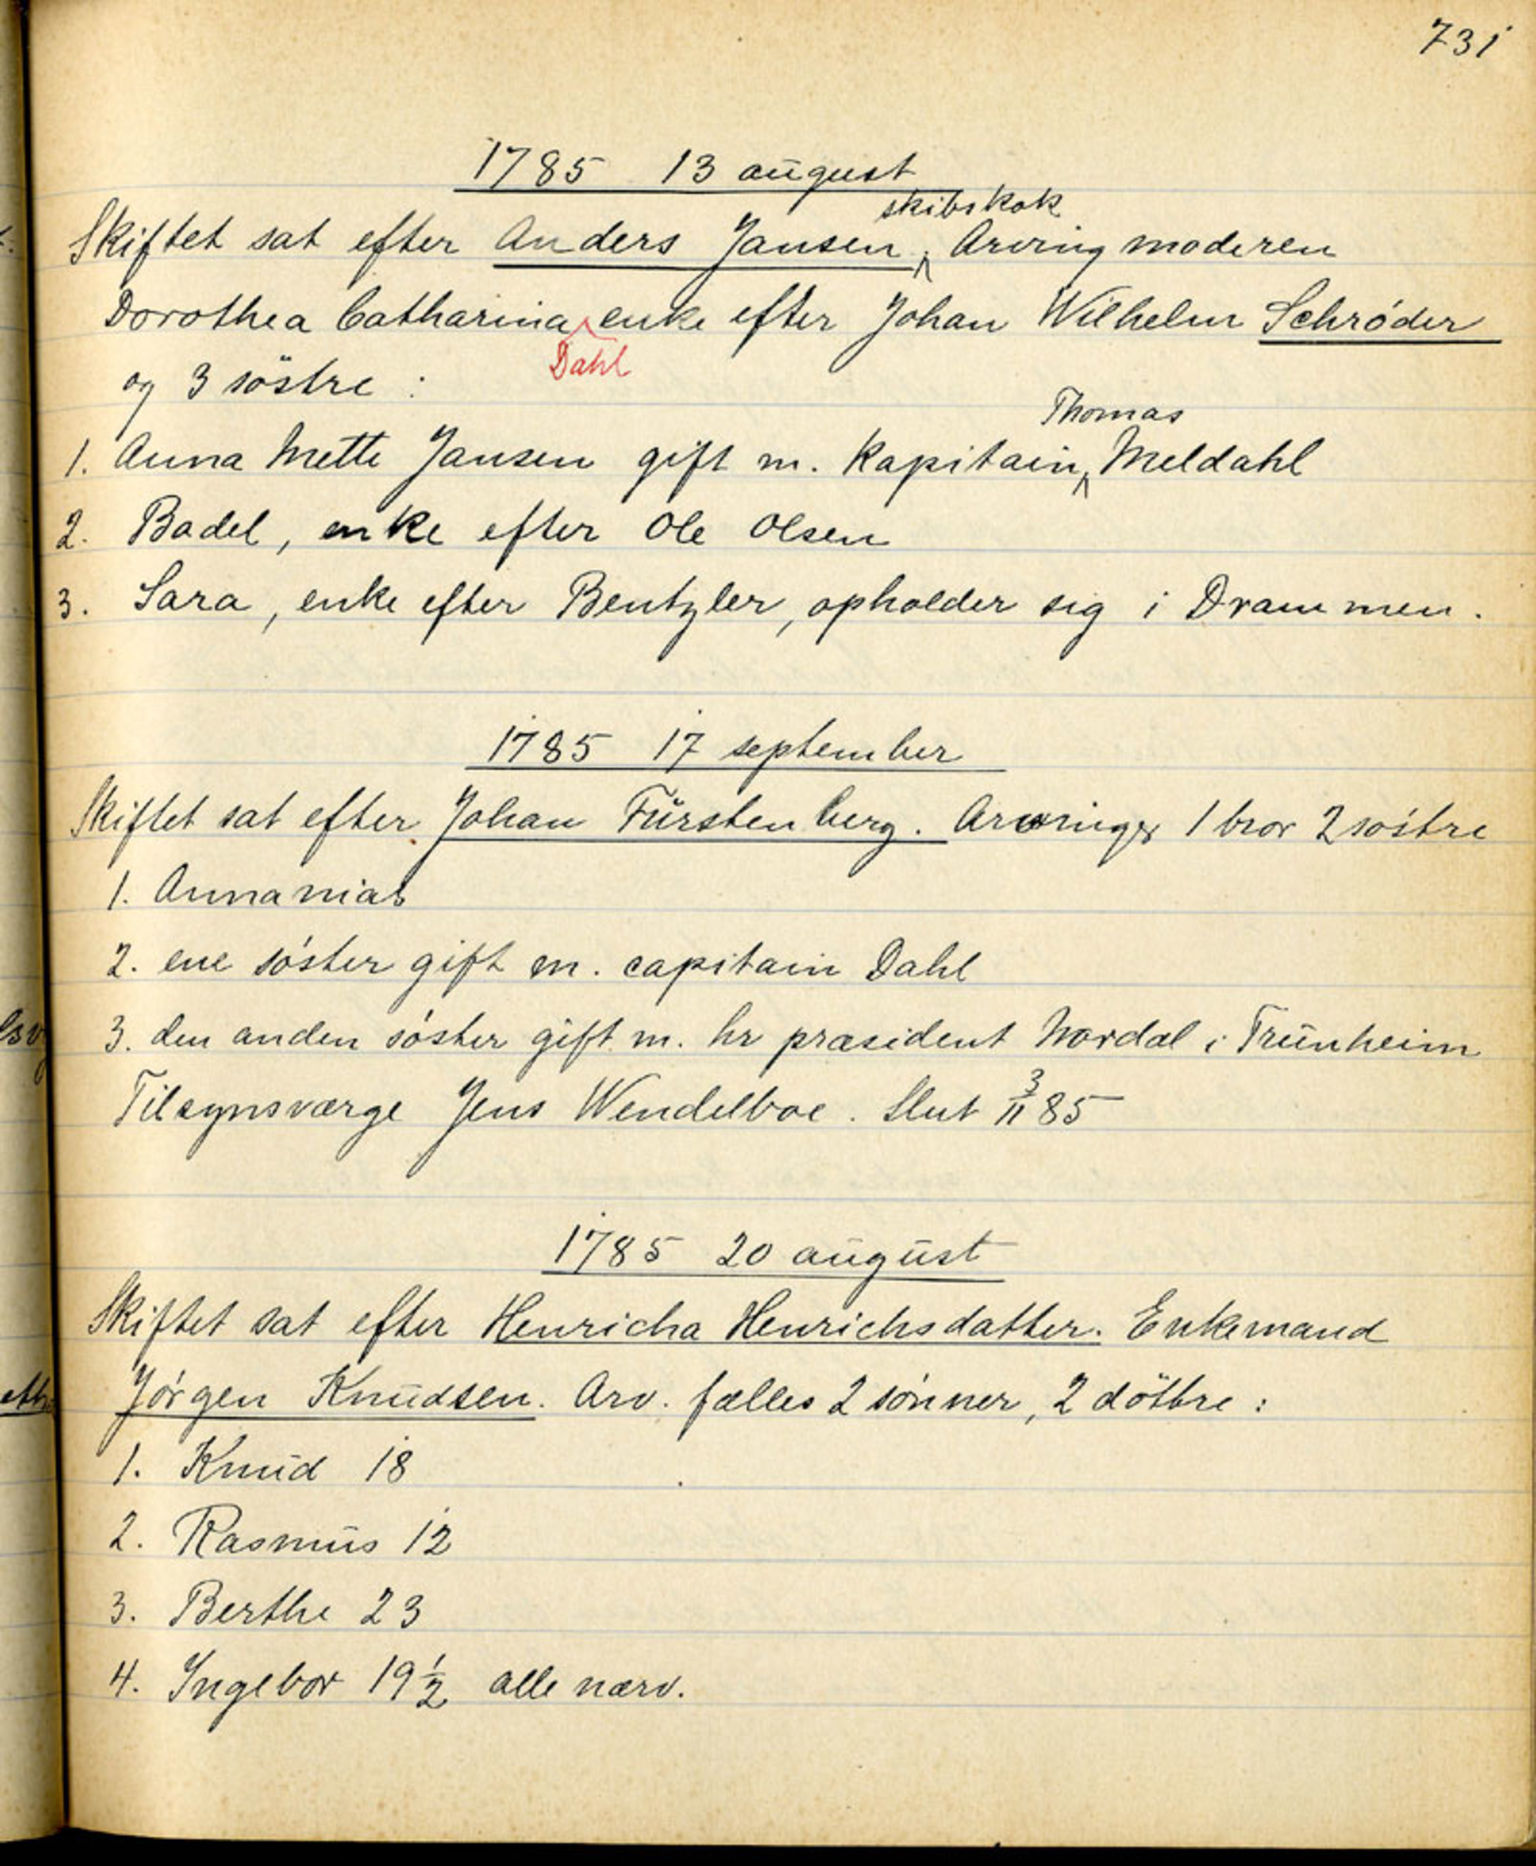 731
1785 13 august
skibskok
Skiftet sat efter Anders Jansen, Arving moderen
Dorothea Catharina enke efter Johan Wilhelm Schróder
Dahl
og 3 söstre :
Thomas
1. Anna Mette Jansen gift m. Kapitain Meldahl
2. Badel, enke efter Ole Olsen
3. Sara, enke efter Bentzler, opholder sig i Drammen.
1785 17 september
Skiftet sat efter Johan Fürstenberg. Arvinger 1 bror 2 sóstre
1. Annanias
2. ene sóster gift m. capitain Dahl
3. den anden sóster gift m. hr præsident Nordal i Trünheim
Tilsynsværge Jens Wendelboe. Slut 3/11 85
1785 20 august
Skiftet sat efter Henricha Henrichsdatter. Enkemand
Jórgen Knudsen. Arv. fælles 2 sónner, 2 döttre :
1. Knud 18
2. Rasmus 12
3. Berthe 23
4. Ingebor 19 1/2 alle nærv.